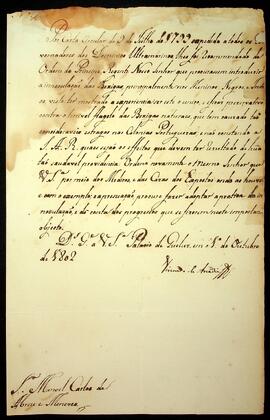 Por Carta Circular de 9 de Julho de 1799 expedida a todos os Go-
vernadores dos Dominios Ultramarinos lhes foi Recommendado de
Ordem do Principe Regente Nosso Senhor que procurassem introduzir
a innoculação das Bexigas principalmente nos Meninos Negros e Indios
os visto ter mostrado a experiencia ser este o unico, e efficaz preservativo
contra o terrivel flagelo das Bexigas naturaes, que tem causado tão
consideraveis estragos nas Colonias Portuguezas; e não constando a
S. A. R. quaes sejão os effeitos que devem ter resultado de huma
tão saudavel providencia Ordena novamente o mesmo Senhor que
V. Sª. por meio dos Medicos, e das Casas dos Expostos onde as houver,
e com o exemplo e a persuação procure fazer adoptar a pratica da in-
noculação, e dê conta dos progressos que se fizerem neste importante
objecto.
Ds. Gde. a V. Sª. Palacio de Queluz em 1º. de Outubro
de 1802
Visconde de Anadia
Sr. Manoel Carlos de
Abreu e Menezes